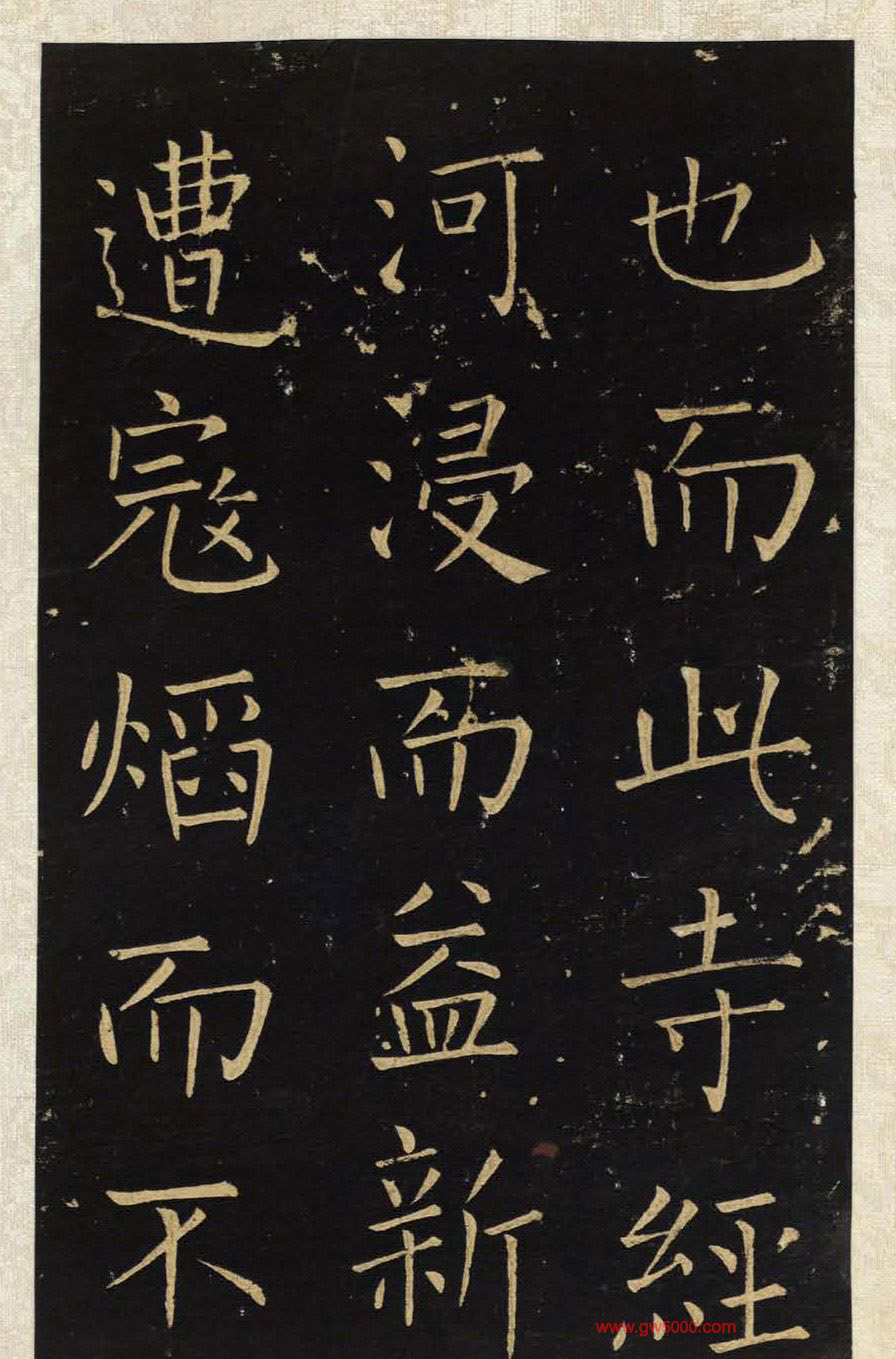 也而此寺經
河浸而益新
遭寇熖而不
www.gw5000.com